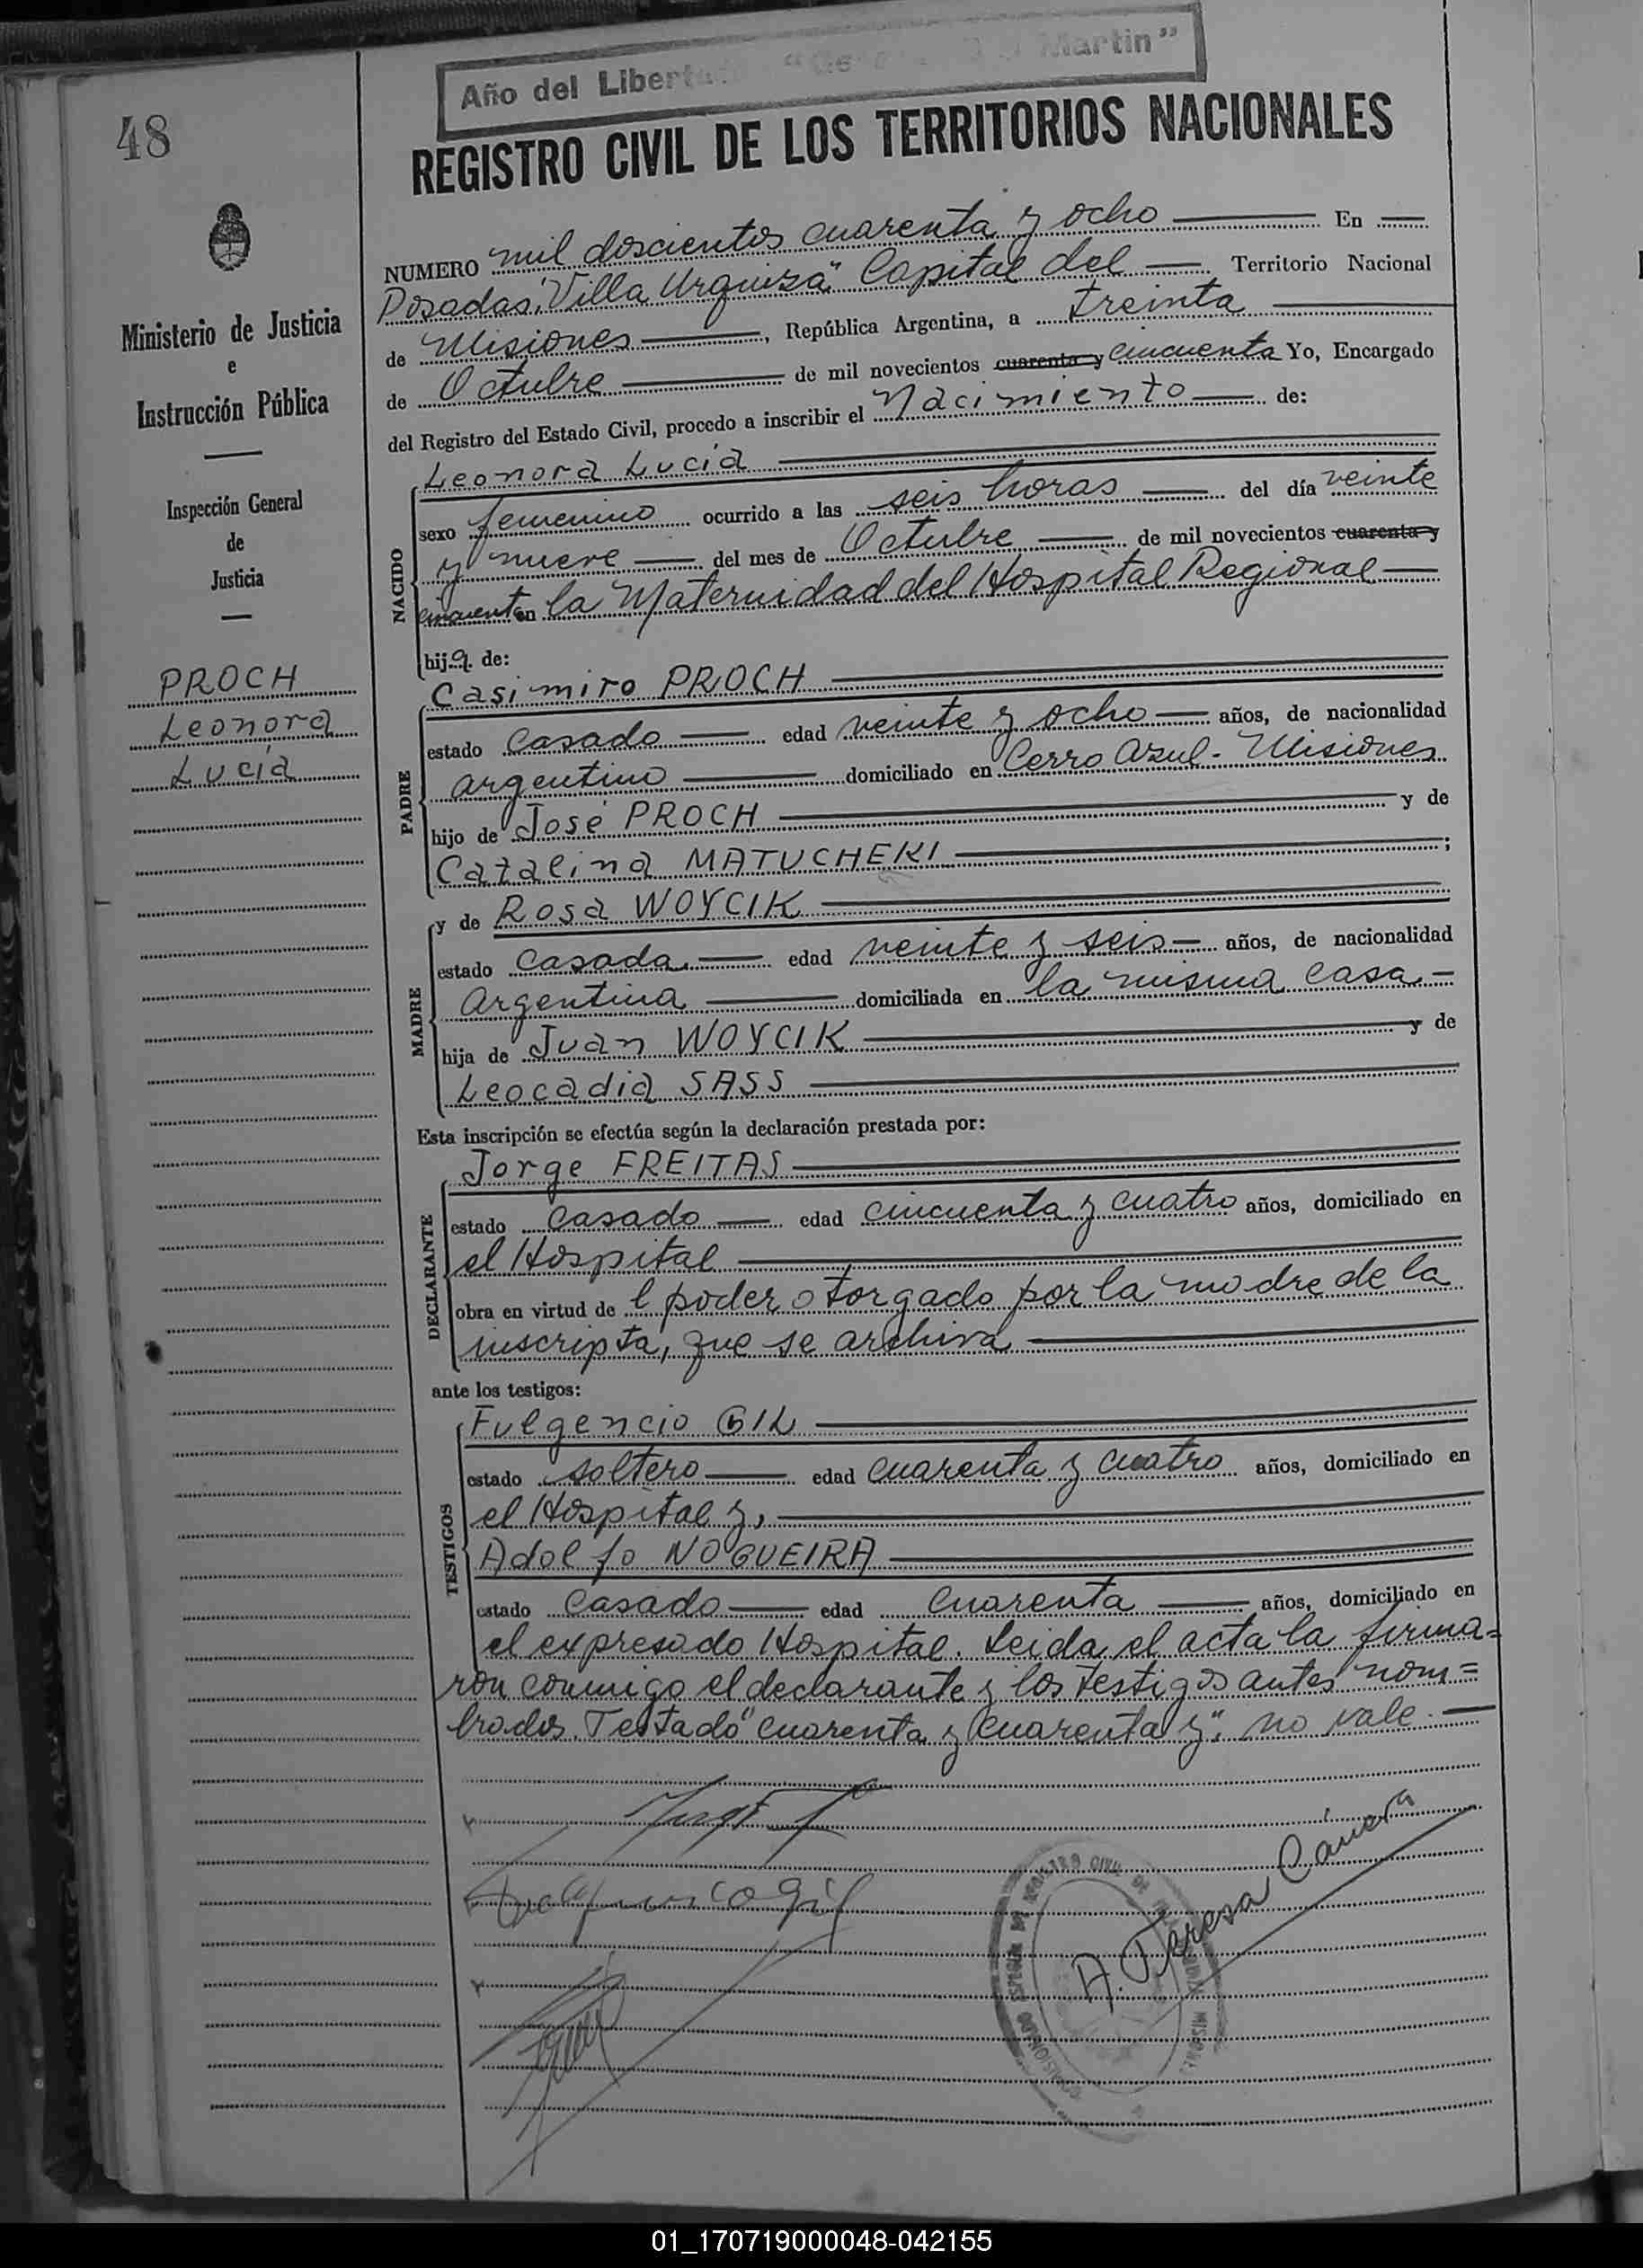 Año del Libertador "General San Martin"
48
REGISTRO CIVIL DE LOS TERRITORIOS NACIONALES
NUMERO mil doscientos cuarenta y ocho En
Posadas, "Villa Urquiza" Capital del Territorio Nacional
de Misiones, República Argentina, a treinta
de Octubre de mil novecientos cuarenta y cincuenta Yo, Encargado
del Registro del Estado Civil, procedo a inscribir el Nacimiento de:
Ministerio de Justicia
e
Instrucción Pública
Inspección General
de
Justicia
PROCH
Leonora
Lucía
NACIDO
Leonora Lucía
sexo femenino ocurrido a las seis horas del día veinte
y nueve del mes de Octubre de mil novecientos cuarenta y
cincuenta en la Maternidad del Hospital Regional
hija de:
PADRE
Casimiro PROCH
estado casado edad veinte y ocho años, de nacionalidad
argentino domiciliado en Cerro Azul - Misiones
hijo de José PROCH y de
Catalina MATUCHEKI ;
MADRE
y de Rosa WOYCIK
estado casada edad veinte y seis años, de nacionalidad
Argentina domiciliada en la misma casa
hija de Juan WOYCIK y de
Leocadia SASS
Esta inscripción se efectúa según la declaración prestada por:
DECLARANTE
Jorge FREITAS
estado casado edad cincuenta y cuatro años, domiciliado en
el Hospital
obra en virtud de l poder otorgado por la madre de la
inscripta, que se archiva
ante los testigos:
TESTIGOS
Fulgencio GIL
estado soltero edad cuarenta y cuatro años, domiciliado en
el Hospital y,
Adolfo NOGUEIRA
estado casado edad cuarenta años, domiciliado en
el expresado Hospital. Leida el acta la firma=
ron conmigo el declarante y los testigos antes nom=
brados. Testado "cuarenta y cuarenta y": no vale.
A. Teresa Cánera
01_170719000048-042155